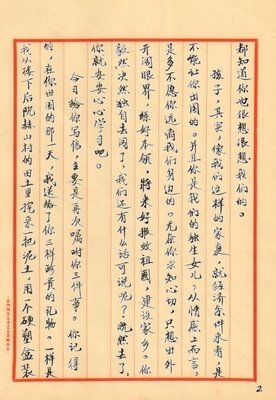 都知道你也很想很想我们的。
孩子，其实，像我们这样的家庭，就经济条件来看，是
不能让你出国的。并且你是我们的独生女儿，从情感上而言，
是多不愿你远离我们身边的。无奈你求知心切，只想出外
开阔眼界，练好本领，将来好报效祖国，建设家乡。你
毅然决然独自去闯了，我们还有什么话可说呢？既然去了，
你就安安心心学习吧。
今日给你写信，主要是再次嘱咐你三件事。你记得
的，在你出国的那一天，我送给了你三样珍贵的礼物。一样是
我从楼下后院赫山村的田土里挖来一把泥土，用一个硬塑盒装
2